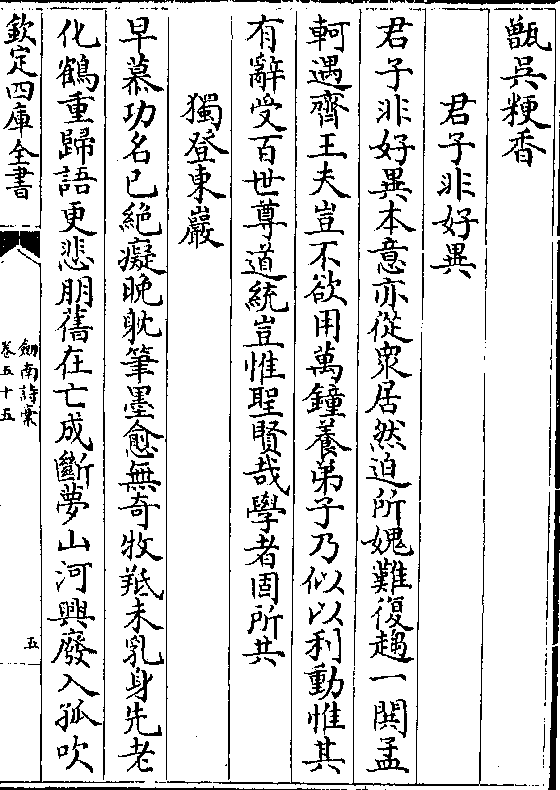 甑呉粳香
君子非好異
君子非好異本意亦從衆居然迫所媿難復趨一閧孟
軻遇齊王夫豈不欲用萬鐘養弟子乃似以利動惟其
有辭受百世尊道統豈惟聖賢哉學者固所共
獨登東巖
早慕功名已絶癡晚躭筆墨愈無奇牧羝未乳身先老
化鶴重歸語更悲朋舊在亡成斷夢山河興廢入孤吹
欽定四庫全書
劒南詩稾
卷五十五
五